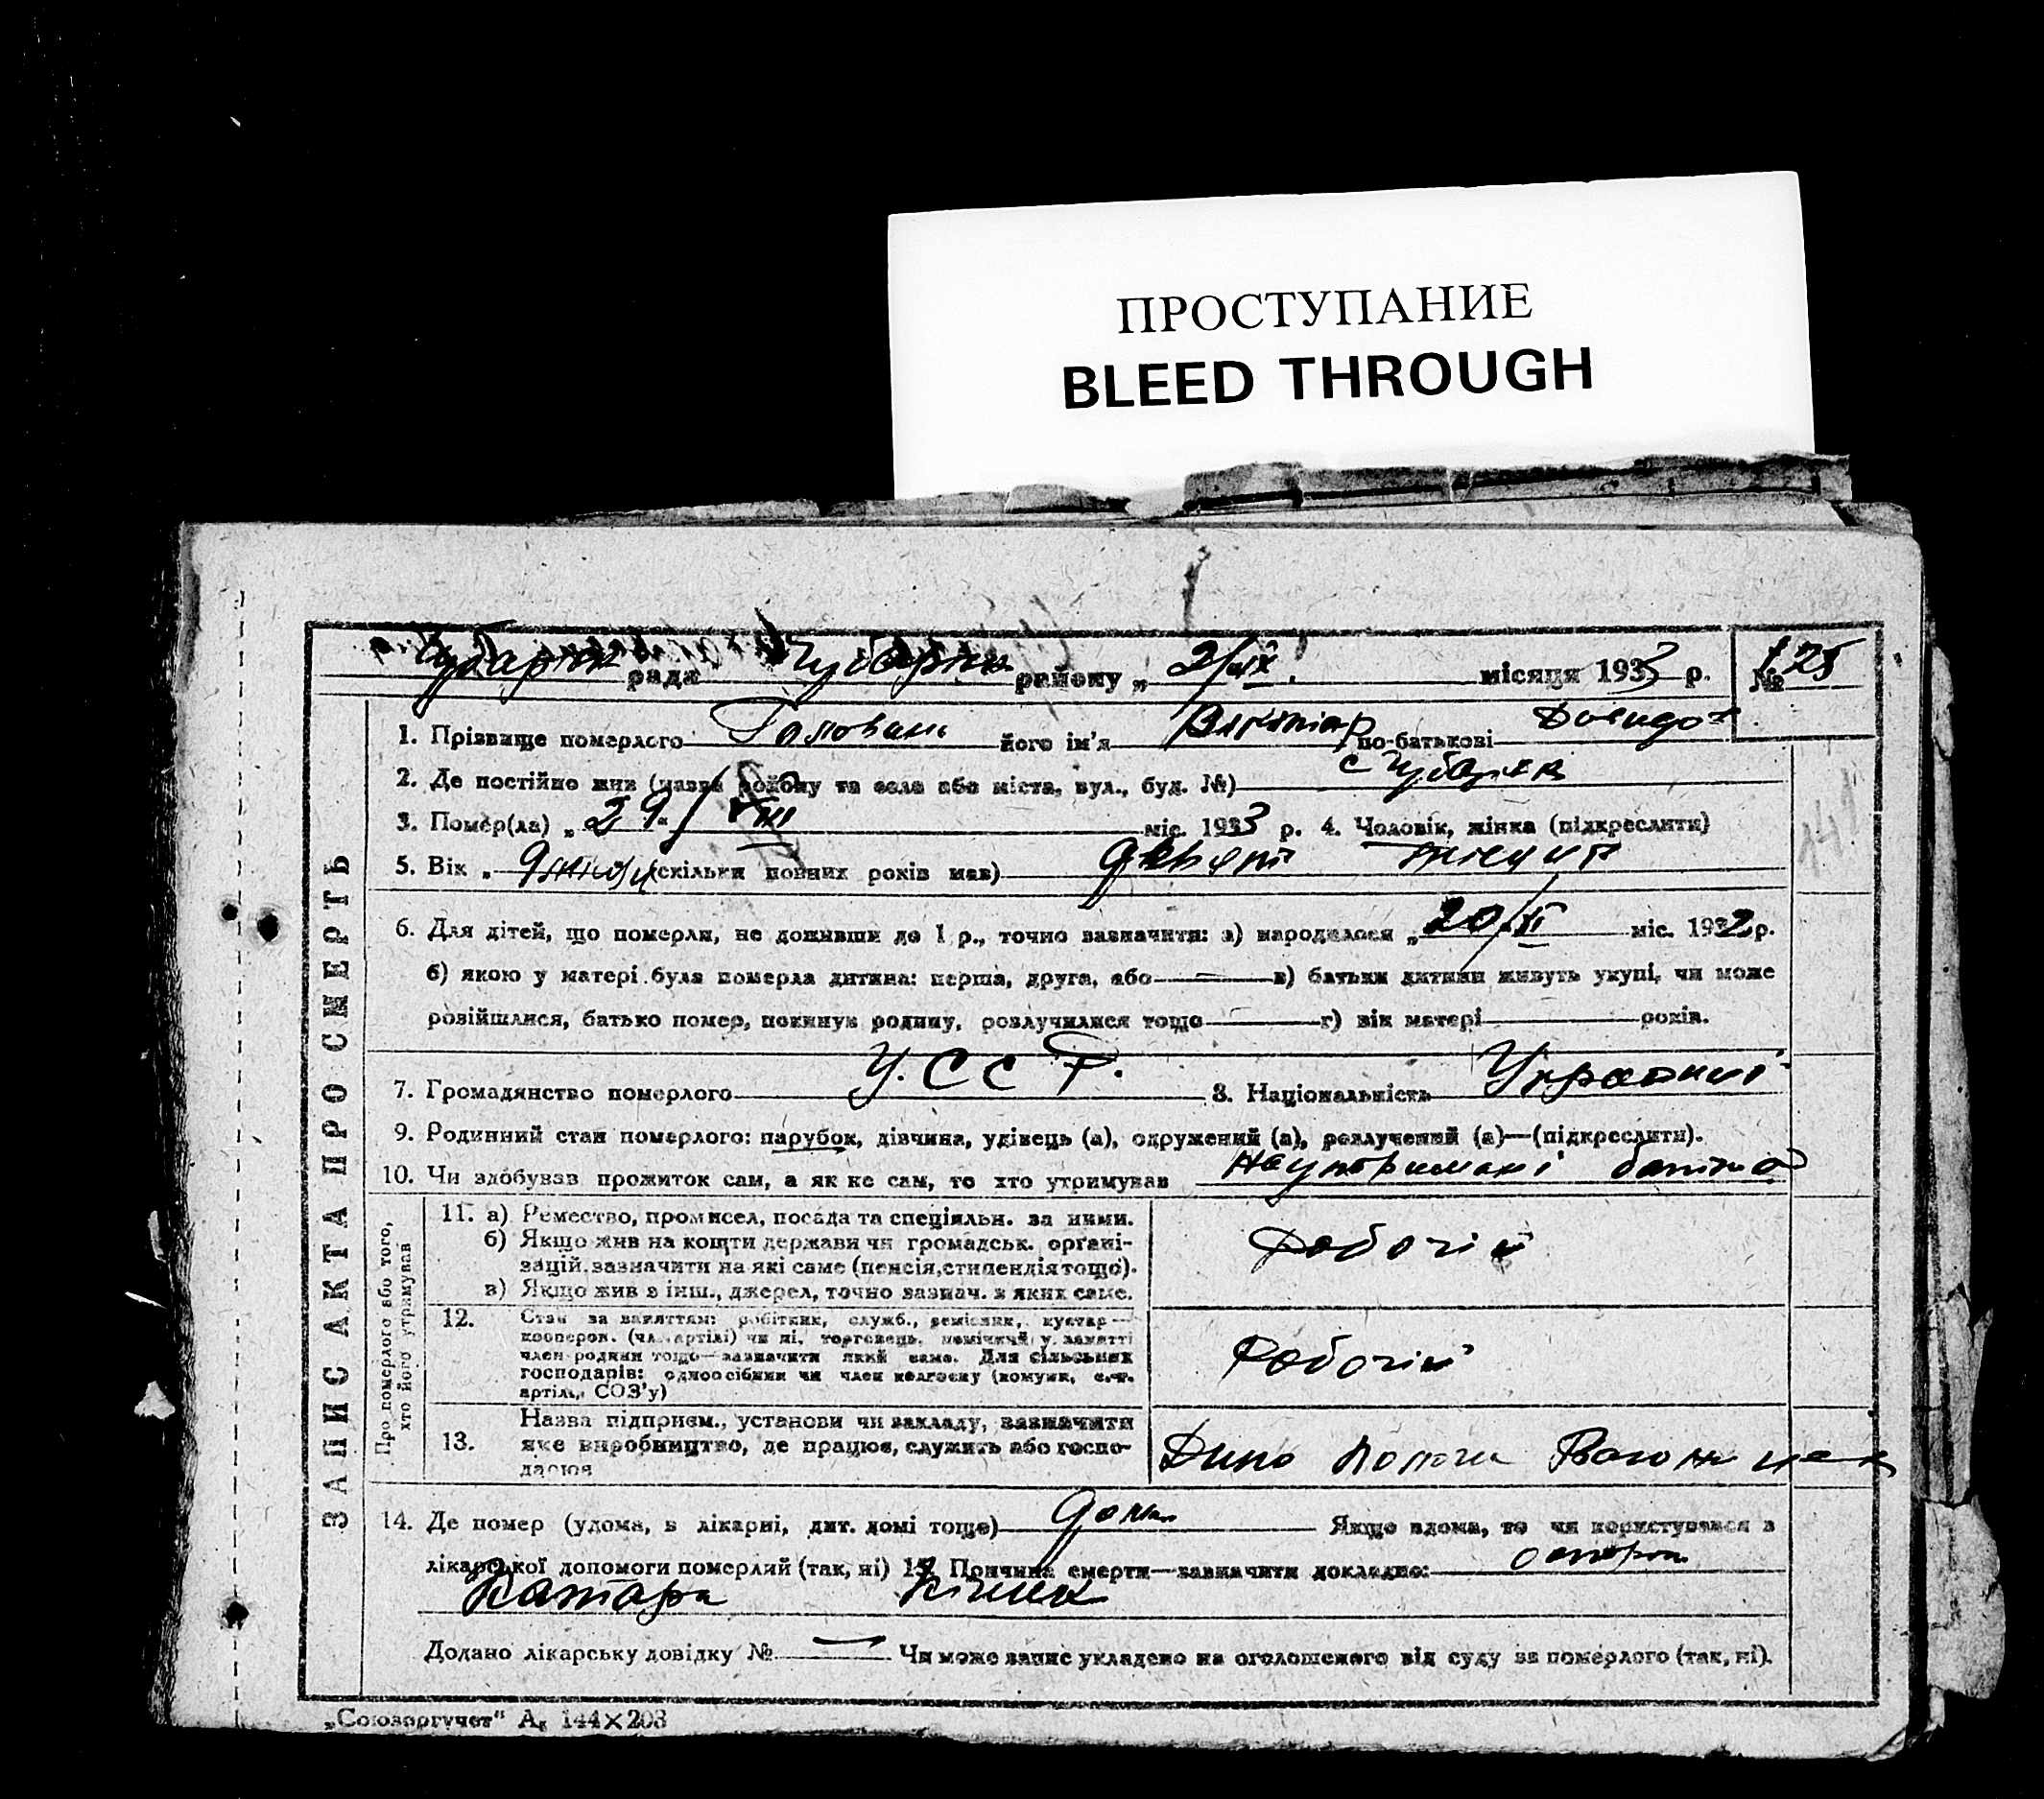 ПРОСТУПАНИЕ
BLEED THROUGH
Чубарівк рада Чубарівк району „ 2/IX. місяця 1933 р. № 125
1. Прізвище померлого Головань його ім'я Віктор по-батькові
2. Де постійно жив (назва району та села або міста, вул., буд. №) с Чубарівка
3. Помер(ла) „ 29 / VIII міс. 1933 р. 4. Чоловік, жінка (підкреслити)
5. Вік „ (скільки повних років мав) девять місяців
6. Для дітей, що померли, не доживши до 1 р., точно зазначити: а) народилося „ 20/XI міс. 1932 р.
б) якою у матері була померла дитина: перша, друга, або — в) батьки дитини живуть укупі, чи може
розійшлися, батько помер, покинув родину, розлучилися тощо — г) вік матері — років.
7. Громадянство померлого У. С С Р. 8. Національність
9. Родинний стан померлого: парубок, дівчина, удівець (а), одружений (а), розлучений (а)—(підкреслити).
10. Чи здобував прожиток сам, а як не сам, то хто утримував на утримані батька
ЗАПИС АКТА ПРО СМЕРТЬ
Про померлого або того,
хто його утримував
11. а) Ремество, промисел, посада та спеціяльн. за ними.
б) Якщо жив на кошти держави чи громадськ. органі-
зацій, зазначити на які саме (пенсія, стипендія тощо).
в) Якщо жив з інш., джерел, точно зазнач. з яких саме.
Робочій
12. Стан за заняттям: робітник, служб., ремісник, кустар—
кооперов. (чл. артілі) чи ні, торговець, помічний у занятті
член родини тощо—зазначити який саме. Для сільських
господарів: одноосібник чи член колгоспу (комуни, с.-г.
артіль, СОЗ'у)
Робочій
13. Назва підприєм., установи чи закладу, зазначити
яке виробництво, де працює, служить або госпо-
дарює
14. Де помер (удома, в лікарні, дит. домі тощо) дома Якщо вдома, то чи користувався з
лікарської допомоги померлий (так, ні) 15. Причина смерти—зазначити докладно:
Катара кішек
Додано лікарську довідку № — Чи може запис укладено на оголошеного від суду за померлого (так, ні).
„Союзоргучет" А₅ 144×203